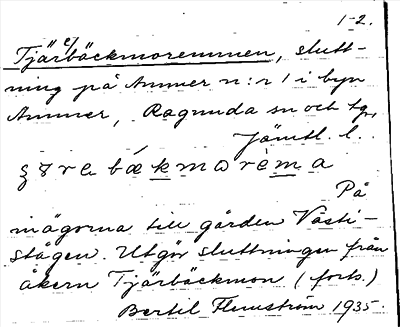 1-2.
Tjärbäckmoremmen, slutt-
ning på Ammer n:r 1 i byn
Ammer, Ragunda sn och tg,
Jämtl. l.
På
ägorna till gården Västi-
stågen. Utgör sluttningen från
åkern Tjärbäckmon (forts.)
Bertil Flemström 1935.